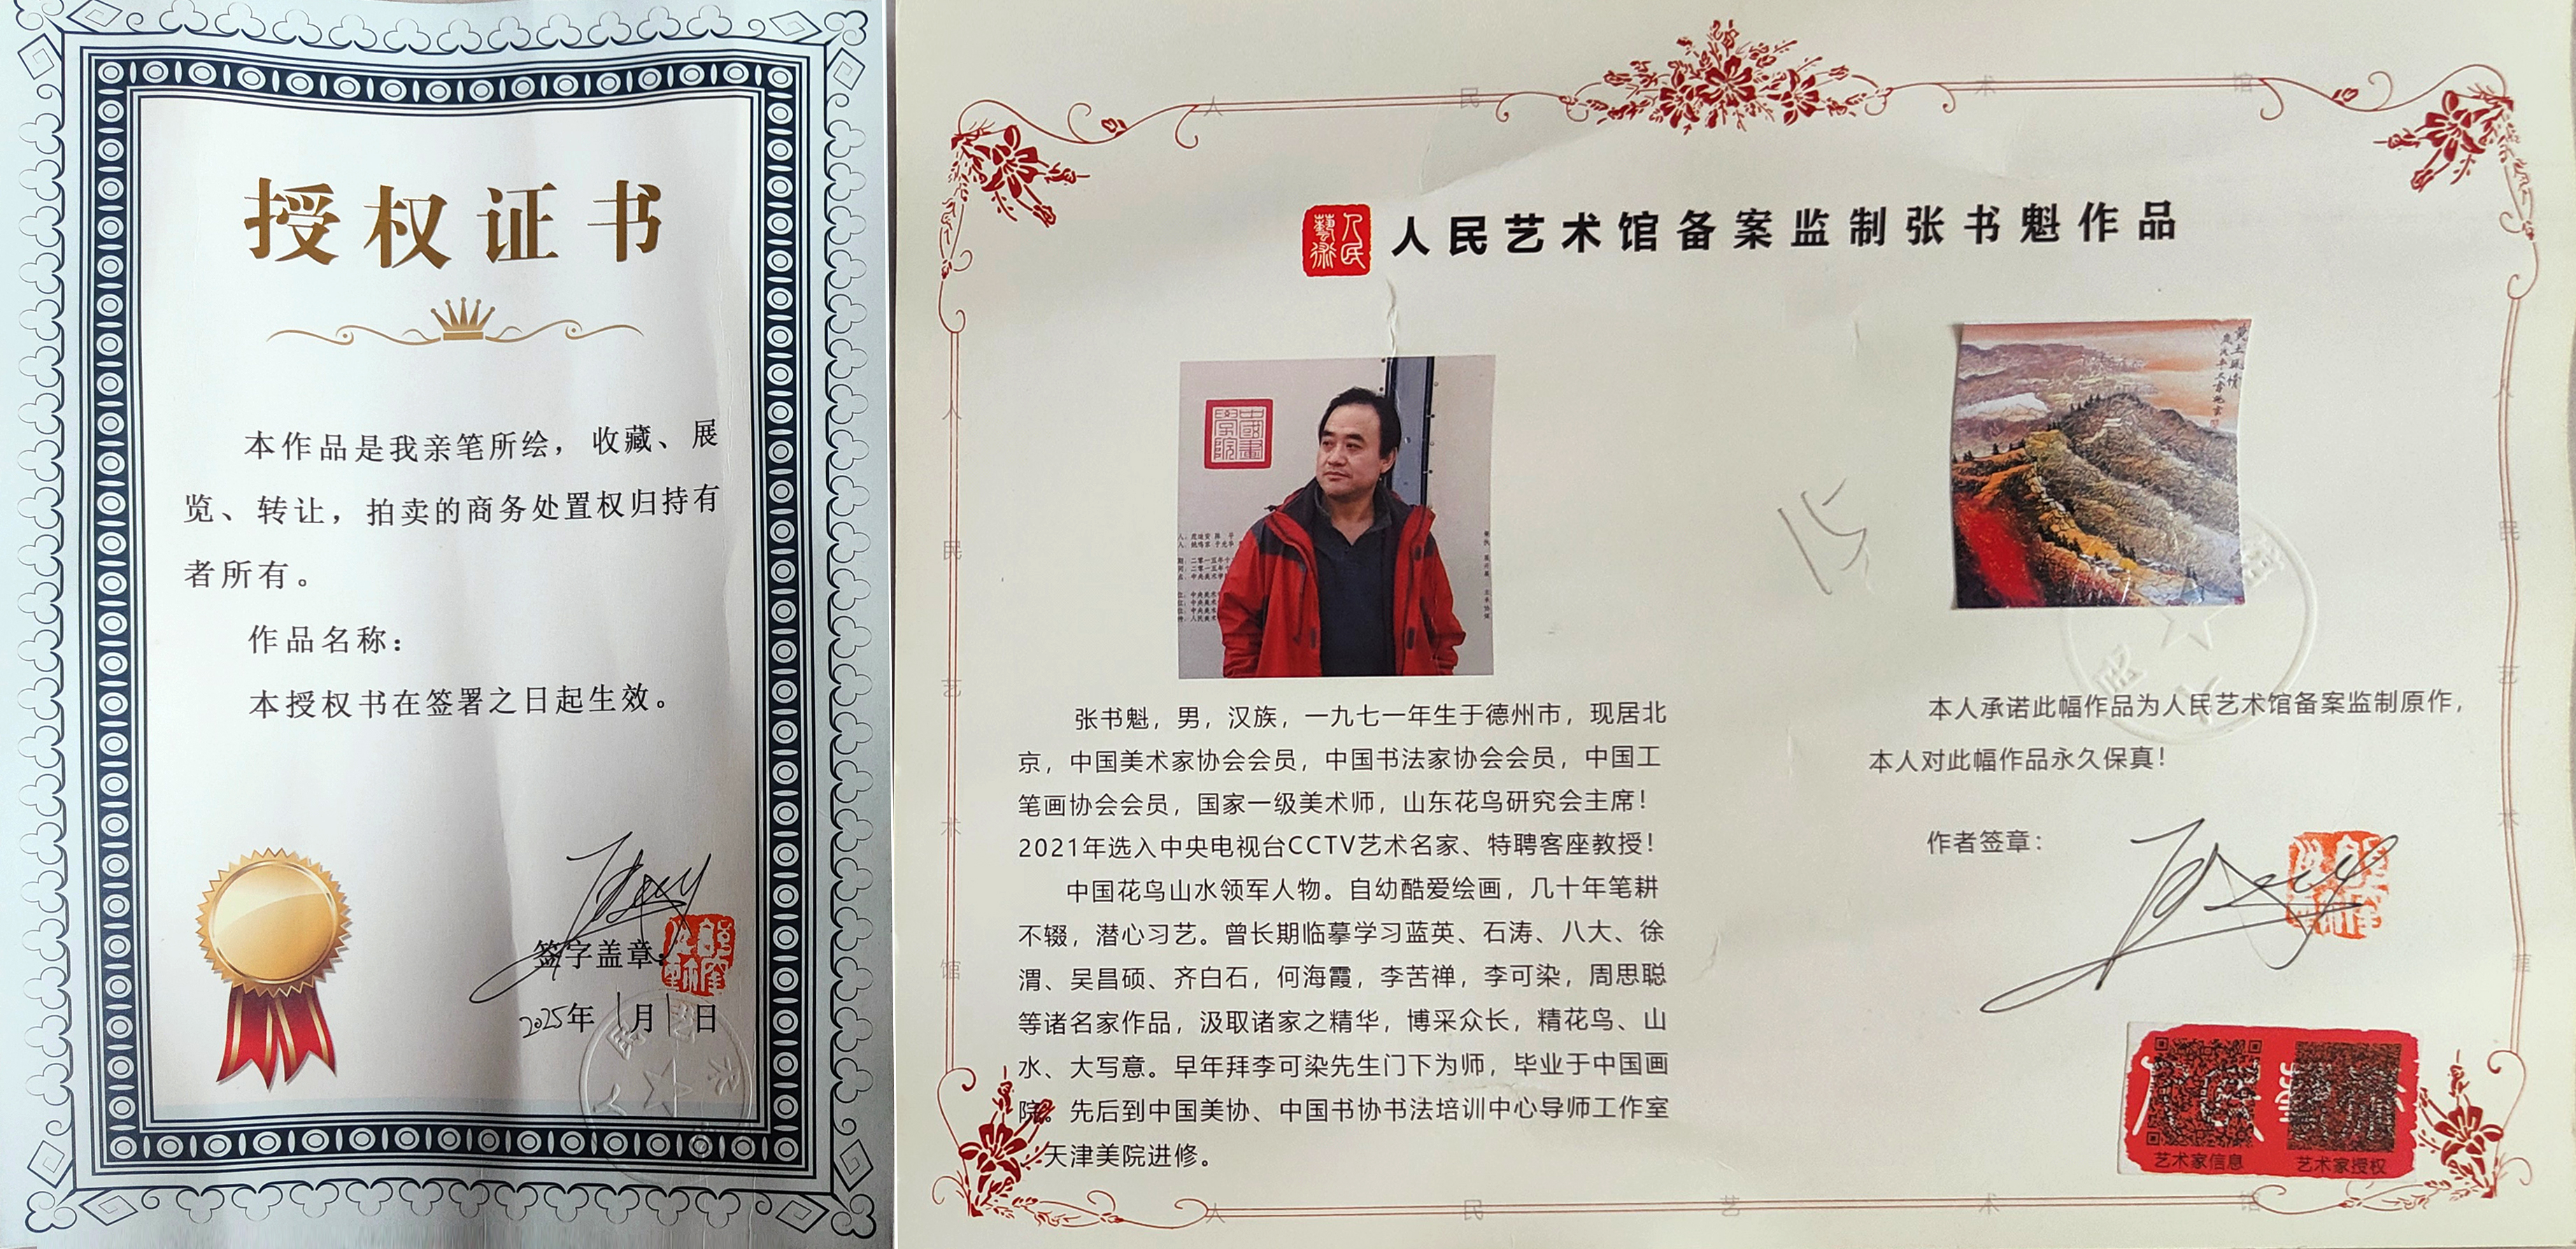 授权证书
本作品是我亲笔所绘，收藏、展
览、转让，拍卖的商务处置权归持有
者所有。
作品名称：
本授权书在签署之日起生效。
签字盖章：
2025年1月1日
人民艺术
人民艺术馆备案监制张书魁作品
中國畫學院
张书魁，男，汉族，一九七一年生于德州市，现居北
京，中国美术家协会会员，中国书法家协会会员，中国工
笔画协会会员，国家一级美术师，山东花鸟研究会主席！
2021年选入中央电视台CCTV艺术名家、特聘客座教授！
中国花鸟山水领军人物。自幼酷爱绘画，几十年笔耕
不辍，潜心习艺。曾长期临摹学习蓝英、石涛、八大、徐
渭、吴昌硕、齐白石，何海霞，李苦禅，李可染，周思聪
等诸名家作品，汲取诸家之精华，博采众长，精花鸟、山
水、大写意。早年拜李可染先生门下为师，毕业于中国画
院。先后到中国美协、中国书协书法培训中心导师工作室
天津美院进修。
15
本人承诺此幅作品为人民艺术馆备案监制原作，
本人对此幅作品永久保真！
作者签章：
艺术家信息
艺术家授权
人民艺术馆